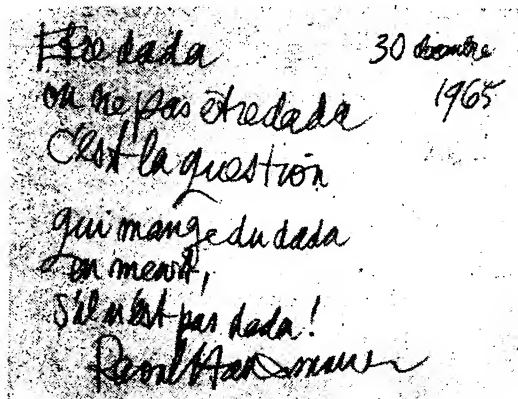 Etre dada
ou ne pas être dada
c'est la question
qui mange du dada
en meurt,
s'il n'est pas dada!
Raoul Hausmann
30 décembre
1965